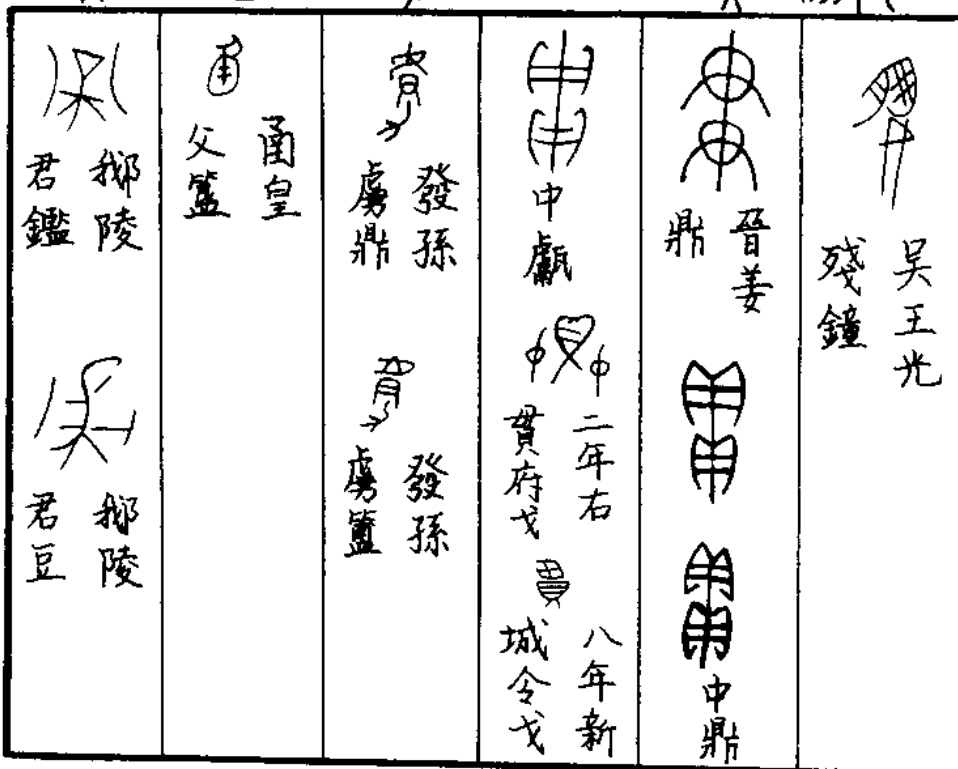 吴王光
殘鐘
晉姜
鼎
中鼎
中甗
二年右
貫府戈
八年新
城令戈
發孫
虜鼎
發孫
虜簠
圅皇
父簠
陵
君鑑
陵
君豆